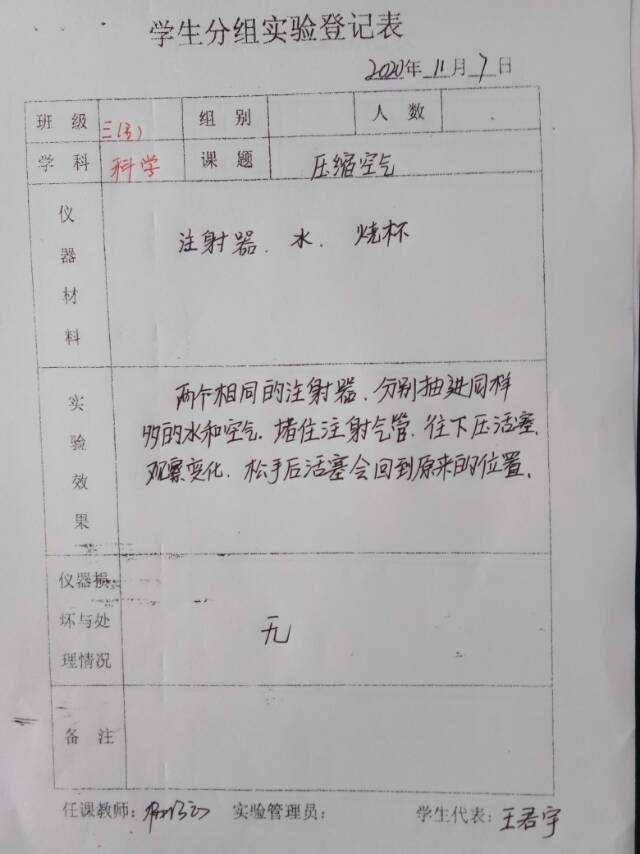 学生分组实验登记表
2020年 11月 7日
班级 三(3) 组别 人数
学科 科学 课题 压缩空气
仪器材料 注射器、水、烧杯
实验效果
两个相同的注射器、分别抽进同样
多的水和空气、堵住注射气管、往下压活塞、
观察变化、松手后活塞会回到原来的位置。
仪器损
坏与处
理情况
无
备注
任课教师: 实验管理员: 学生代表: 王君宇